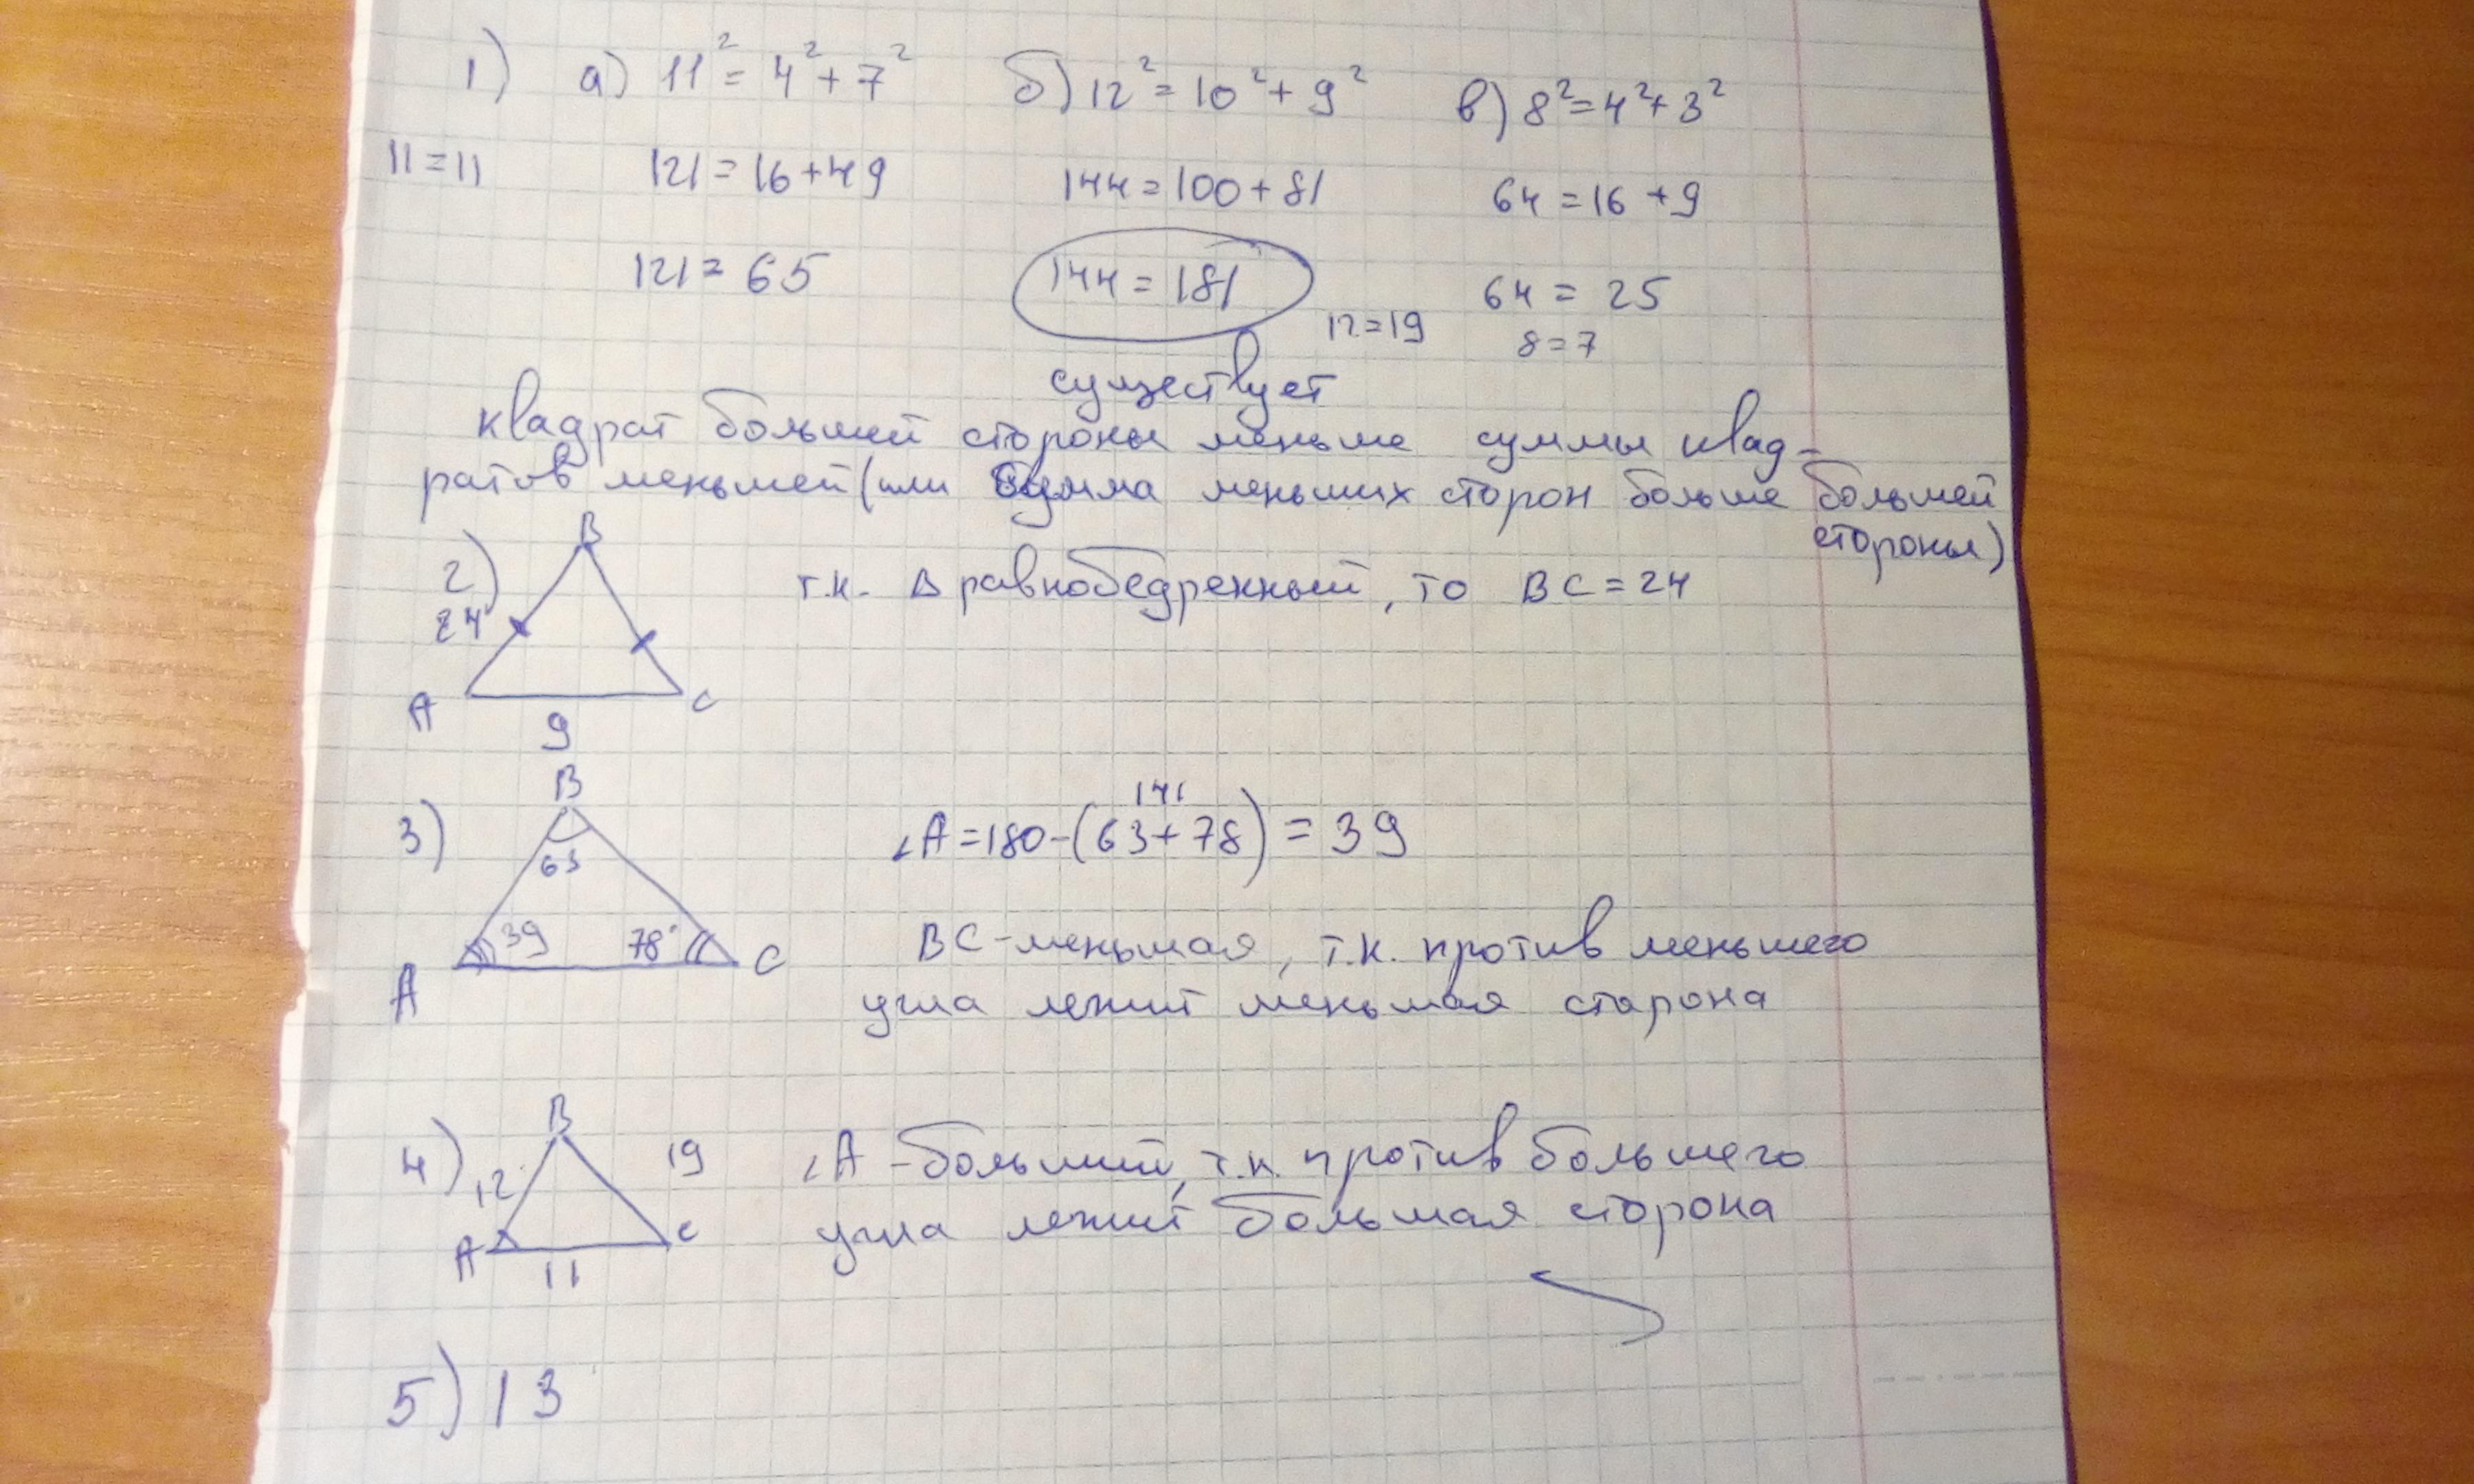 1) а) 11² = 4² + 7² б) 12² = 10² + 9² в) 8² = 4² + 3²
11 = 11 121 = 16 + 49 144 = 100 + 81 64 = 16 + 9
121 = 65 144 = 181 12 = 19 64 = 25
8 = 7
существует
квадрат большей стороны меньше суммы квад-
ратов меньшей (или сумма меньших сторон больше большей
стороны)
2) B т.к. Δ равнобедренный, то BC = 24
24
A C
9
B
3) 141
∠A = 180 - (63 + 78) = 39
63
39 78°
A C
BC - меньшая, т.к. против меньшего
угла лежит меньшая сторона
B
4) 12 19 ∠A - больший, т.к. против большего
угла лежит большая сторона
A C
11
5) 13